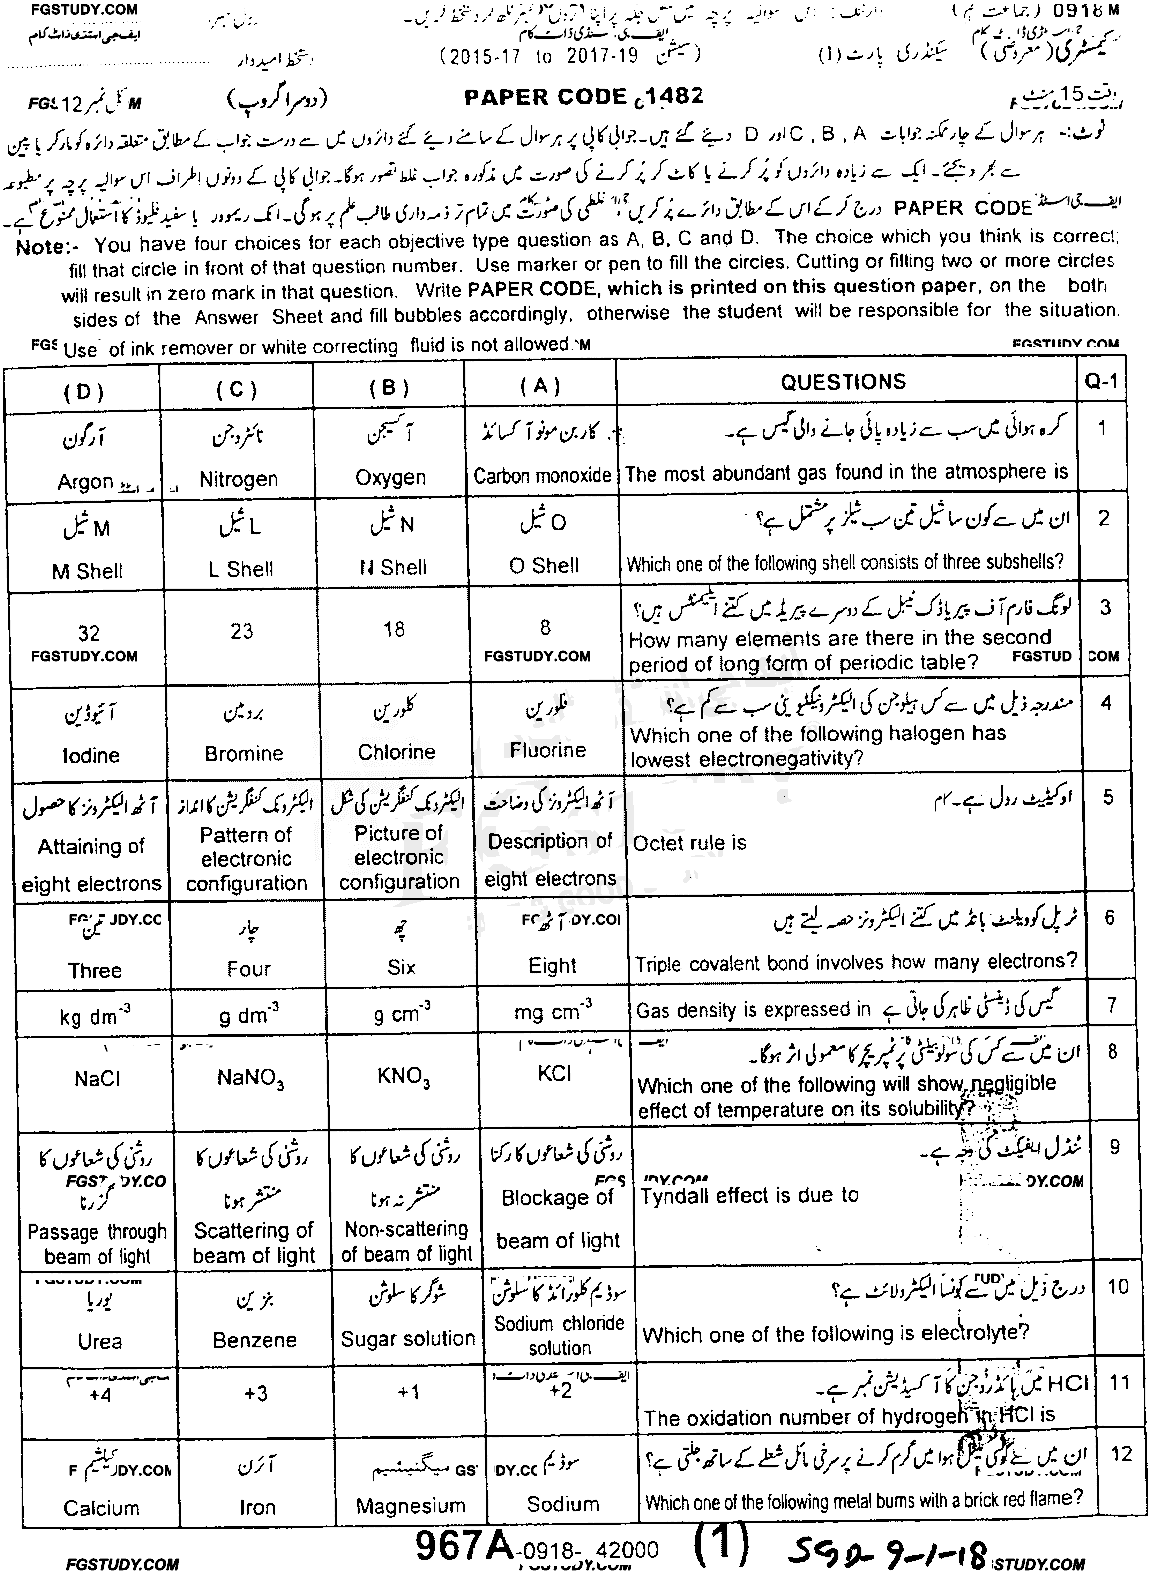 FGSTUDY.COM
0918 M (جماعت نہم)
ایف جی اسٹڈی ڈاٹ کام
کیمسٹری (معروضی) سیکنڈری پارٹ (1) (سیشن 2015-17 to 2017-19) دستخط امیدوار
وقت 15 منٹ PAPER CODE 1482 (دوسرا گروپ) کل نمبر 12
نوٹ:- ہر سوال کے چار ممکنہ جوابات A ، B ، C اور D دیئے گئے ہیں۔ جوابی کاپی پر ہر سوال کے سامنے دیئے گئے دائروں میں سے درست جواب کے مطابق متعلقہ دائرہ کو مارکر یا پین
سے بھر دیجئے۔ ایک سے زیادہ دائروں کو پُر کرنے یا کاٹ کر پُر کرنے کی صورت میں مذکورہ جواب غلط تصور ہوگا۔ جوابی کاپی کے دونوں اطراف اس سوالیہ پرچہ پر مطبوعہ
PAPER CODE درج کر کے اس کے مطابق دائرے پُر کریں، غلطی کی صورت میں تمام تر ذمہ داری طالب علم پر ہوگی۔ انک ریموور یا سفید فلیوڈ کا استعمال ممنوع ہے۔
Note:- You have four choices for each objective type question as A, B, C and D. The choice which you think is correct;
fill that circle in front of that question number. Use marker or pen to fill the circles. Cutting or filling two or more circles
will result in zero mark in that question. Write PAPER CODE, which is printed on this question paper, on the both
sides of the Answer Sheet and fill bubbles accordingly, otherwise the student will be responsible for the situation.
Use of ink remover or white correcting fluid is not allowed.
FGSTUDY.COM
(D) (C) (B) (A) QUESTIONS Q-1
آرگون نائٹروجن آکسیجن کاربن مونو آکسائڈ کرہ ہوائی میں سب سے زیادہ پائی جانے والی گیس ہے۔ 1
Argon Nitrogen Oxygen Carbon monoxide The most abundant gas found in the atmosphere is
M شیل L شیل N شیل O شیل ان میں سے کون سا شیل تین سب شیلز پر مشتمل ہے؟ 2
M Shell L Shell N Shell O Shell Which one of the following shell consists of three subshells?
لونگ فارم آف پیریاڈک ٹیبل کے دوسرے پیریڈ میں کتنے ایلیمنٹس ہیں؟ 3
32 23 18 8 How many elements are there in the second
FGSTUDY.COM FGSTUDY.COM period of long form of periodic table? FGSTUD COM
آئیوڈین برومین کلورین فلورین مندرجہ ذیل میں سے کس ہیلوجن کی الیکٹرونیگیٹویٹی سب سے کم ہے؟ 4
Iodine Bromine Chlorine Fluorine Which one of the following halogen has
lowest electronegativity?
آٹھ الیکٹرونز کا حصول الیکٹرونک کنفگریشن کا انداز الیکٹرونک کنفگریشن کی شکل آٹھ الیکٹرونز کی وضاحت اوکٹیٹ رول ہے۔ 5
Attaining of Pattern of Picture of Description of Octet rule is
eight electrons electronic electronic eight electrons
configuration configuration
تین چار چھ آٹھ ٹرپل کوویلنٹ بانڈ میں کتنے الیکٹرونز حصہ لیتے ہیں 6
Three Four Six Eight Triple covalent bond involves how many electrons?
kg dm⁻³ g dm⁻³ g cm⁻³ mg cm⁻³ Gas density is expressed in گیس کی ڈینسٹی ظاہر کی جاتی ہے 7
ان میں سے کس کی سولوبیلٹی پر ٹمپریچر کا معمولی اثر ہوگا۔ 8
NaCl NaNO₃ KNO₃ KCl Which one of the following will show negligible
effect of temperature on its solubility?
روشنی کی شعاعوں کا گزرنا روشنی کی شعاعوں کا منتشر ہونا روشنی کی شعاعوں کا منتشر نہ ہونا روشنی کی شعاعوں کا رکنا ٹنڈل ایفیکٹ کی وجہ ہے۔ 9
Passage through Scattering of Non-scattering Blockage of Tyndall effect is due to
beam of light beam of light of beam of light beam of light
یوریا بنزین شوگر کا سلوشن سوڈیم کلورائڈ کا سلوشن درج ذیل میں سے کونسا الیکٹرولائٹ ہے؟ 10
Urea Benzene Sugar solution Sodium chloride solution Which one of the following is electrolyte?
+4 +3 +1 +2 HCl میں ہائڈروجن کا آکسیڈیشن نمبر ہے۔ 11
The oxidation number of hydrogen in HCl is
کیلشیم آئرن میگنیشیم سوڈیم ان میں سے کونسی میٹل ہوا میں گرم کرنے پر سرخی مائل شعلے کے ساتھ جلتی ہے؟ 12
Calcium Iron Magnesium Sodium Which one of the following metal burns with a brick red flame?
967A-0918- 42000 (1) SGD-9-1-18
FGSTUDY.COM STUDY.COM